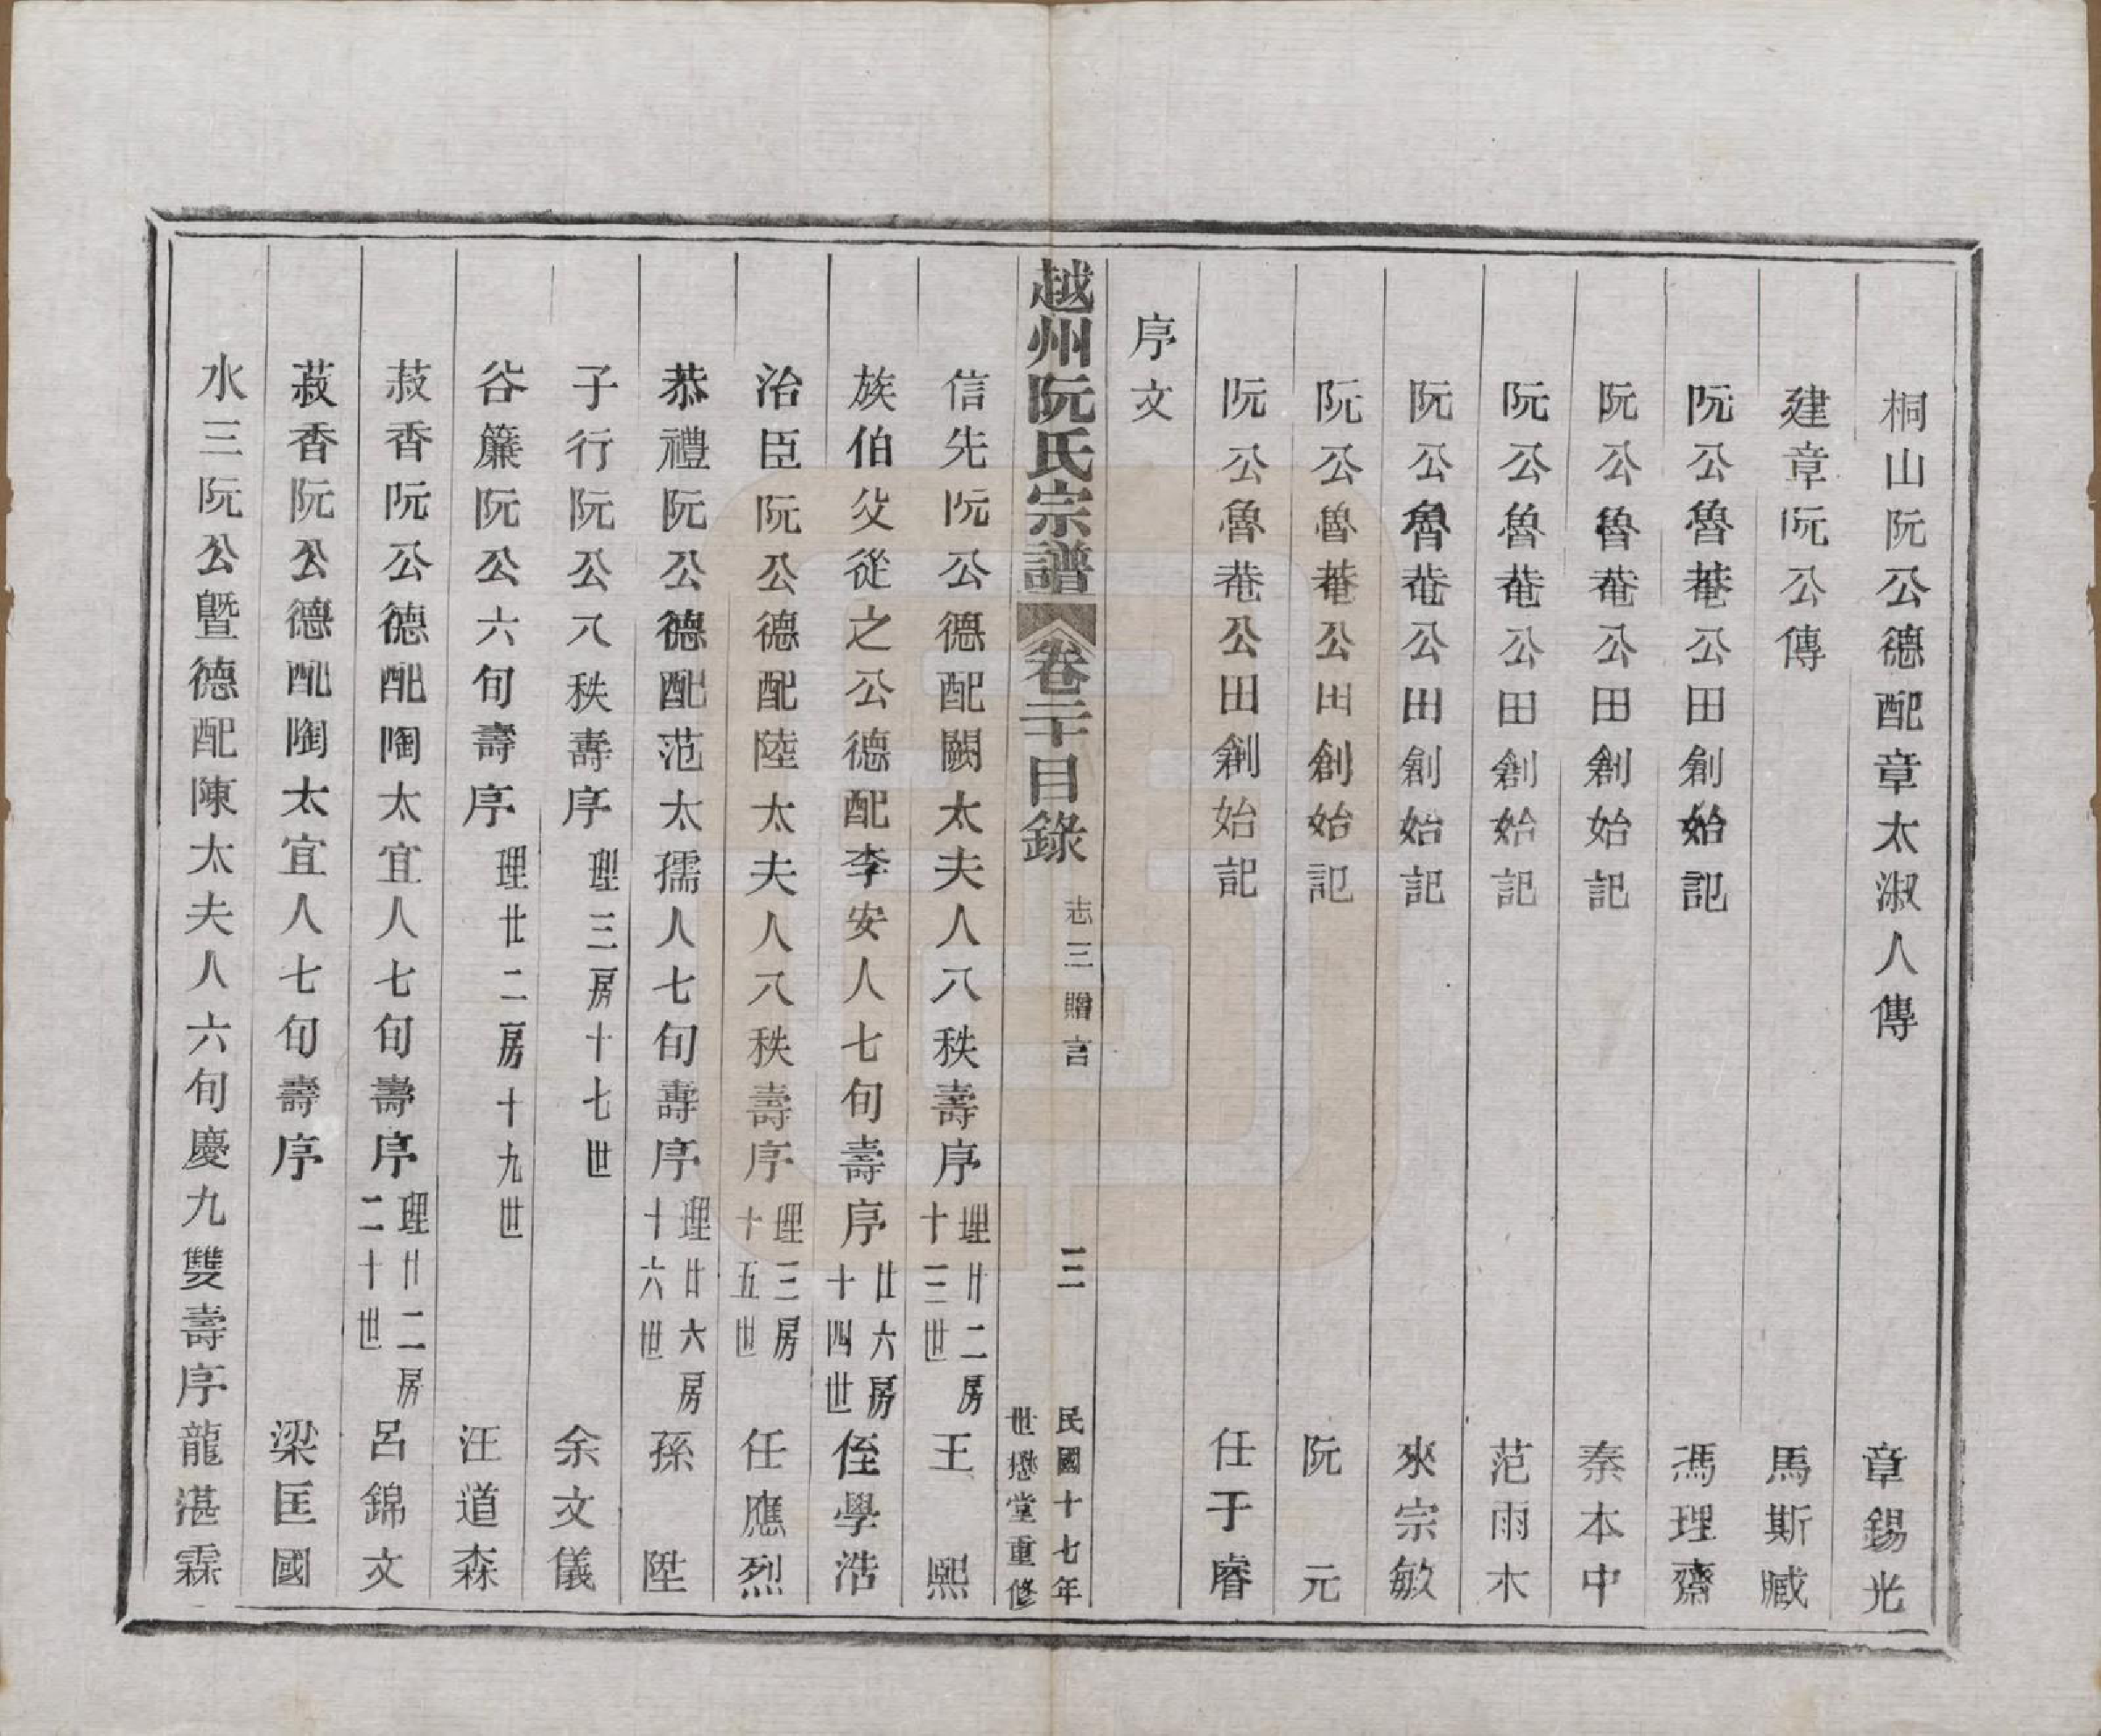 桐山阮公德配章太淑人傳 章錫光
建章阮公傳 馬斯臧
阮公魯菴公田創始記 馮理齋
阮公魯菴公田創始記 秦本中
阮公魯菴公田創始記 范雨木
阮公魯菴公田創始記 來宗敏
阮公魯菴公田創始記 阮元
阮公魯菴公田創始記 任于睿
序文
越州阮氏宗譜 卷二十目錄 志三贈言 三 民國十七年世懋堂重修
信先阮公德配闕太夫人八秩壽序 理廿二房十三世 王熙
族伯父從之公德配李安人七旬壽序 廿六房十四世 侄學浩
治臣阮公德配陸太夫人八秩壽序 理三房十五世 任應烈
恭禮阮公德配范太孺人七旬壽序 理廿六房十六世 孫陞
子行阮公八秩壽序 理三房十七世 余文儀
谷簾阮公六旬壽序 理廿二房十九世 汪道森
菽香阮公德配陶太宜人七旬壽序 理廿二房二十世 呂錦文
菽香阮公德配陶太宜人七旬壽序 梁匡國
水三阮公曁德配陳太夫人六旬慶九雙壽序 龍湛霖